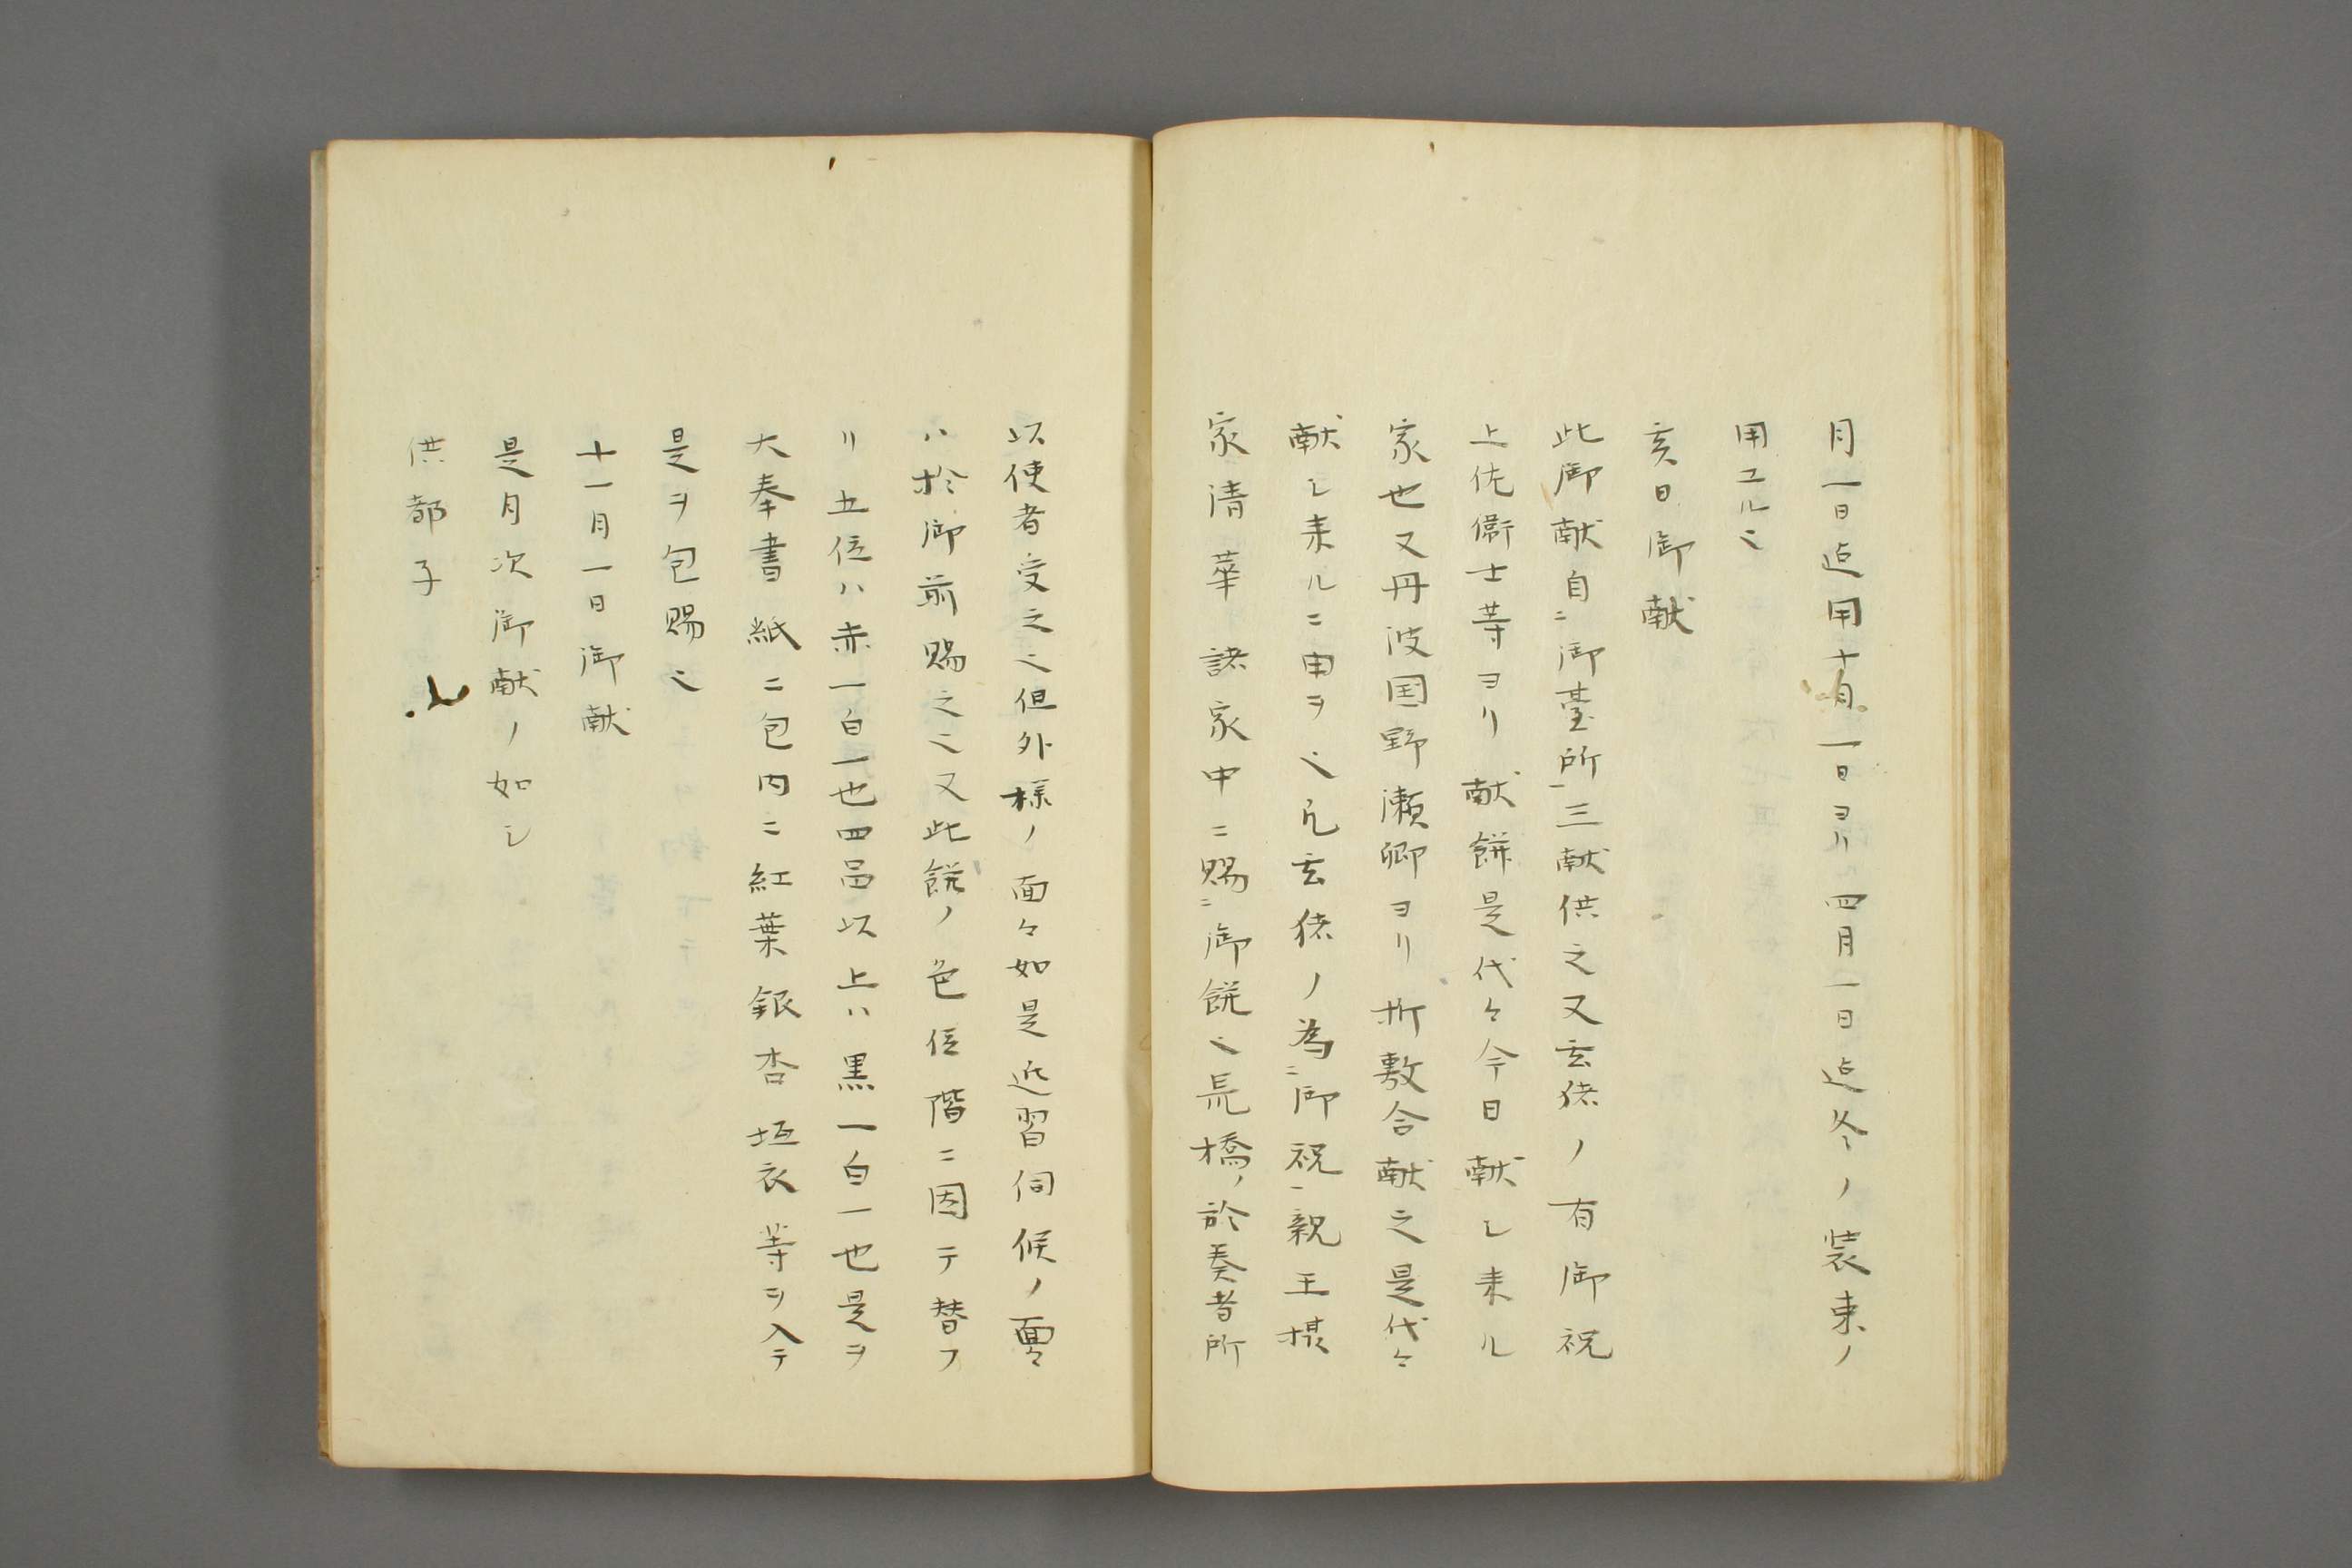 月一日迠用十月一日ヨリ四月一日迠冬ノ装束ノ
用ユル也
亥日御献
此御献自ニ御臺所一三献供之又玄猪ノ有御祝
上佐衛士等ヨリ献餅是代々今日献シ来ル
家也又丹波国野瀬卿ヨリ折敷合献之是代々
献シ来ルニ由ヲ也凢玄猪ノ為ニ御祝一親王様
家清華諸家中ニ賜ニ御餅也長橋ノ於奏者所
以使者受之也但外様ノ面々如是近習伺候ノ面々
ハ於御前賜之也又此餅ノ色位階ニ因テ替フ
リ五位ハ赤一白一也四品以上ハ黒一白一也是ヲ
大奉書紙ニ包内ニ紅葉銀杏垣衣等ヲ入テ
是ヲ包賜也
十一月一日御献
是月次御献ノ如シ
供都子